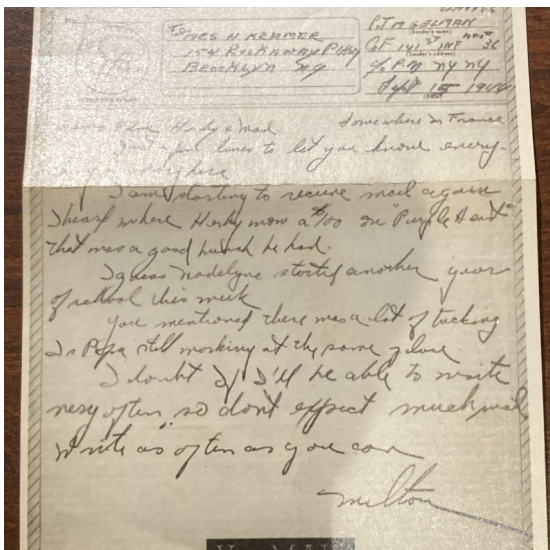 To MRS H KRAMER
154 ROCKAWAY PKWY
BROOKLYN NY
PVT M GELMAN
(Sender's name)
Co F 141 ST INF 36
(Sender's address)
c/o P.M. NY NY
Sept 1st 1944
(Date)
Somewhere in France
Herby & Mad
Just a few lines to let you know every-
I am starting to receive mail again
I hear where Herby won a $100 on "Purple Heart"
that was a good hunch he had.
I guess Madelyne starting another year
of school this week
You mentioned there was a lot of
Is Papa still working at the same place
I doubt if I'll be able to write
very often so dont expect much mail
Write as often as you can
Milton
MAIL